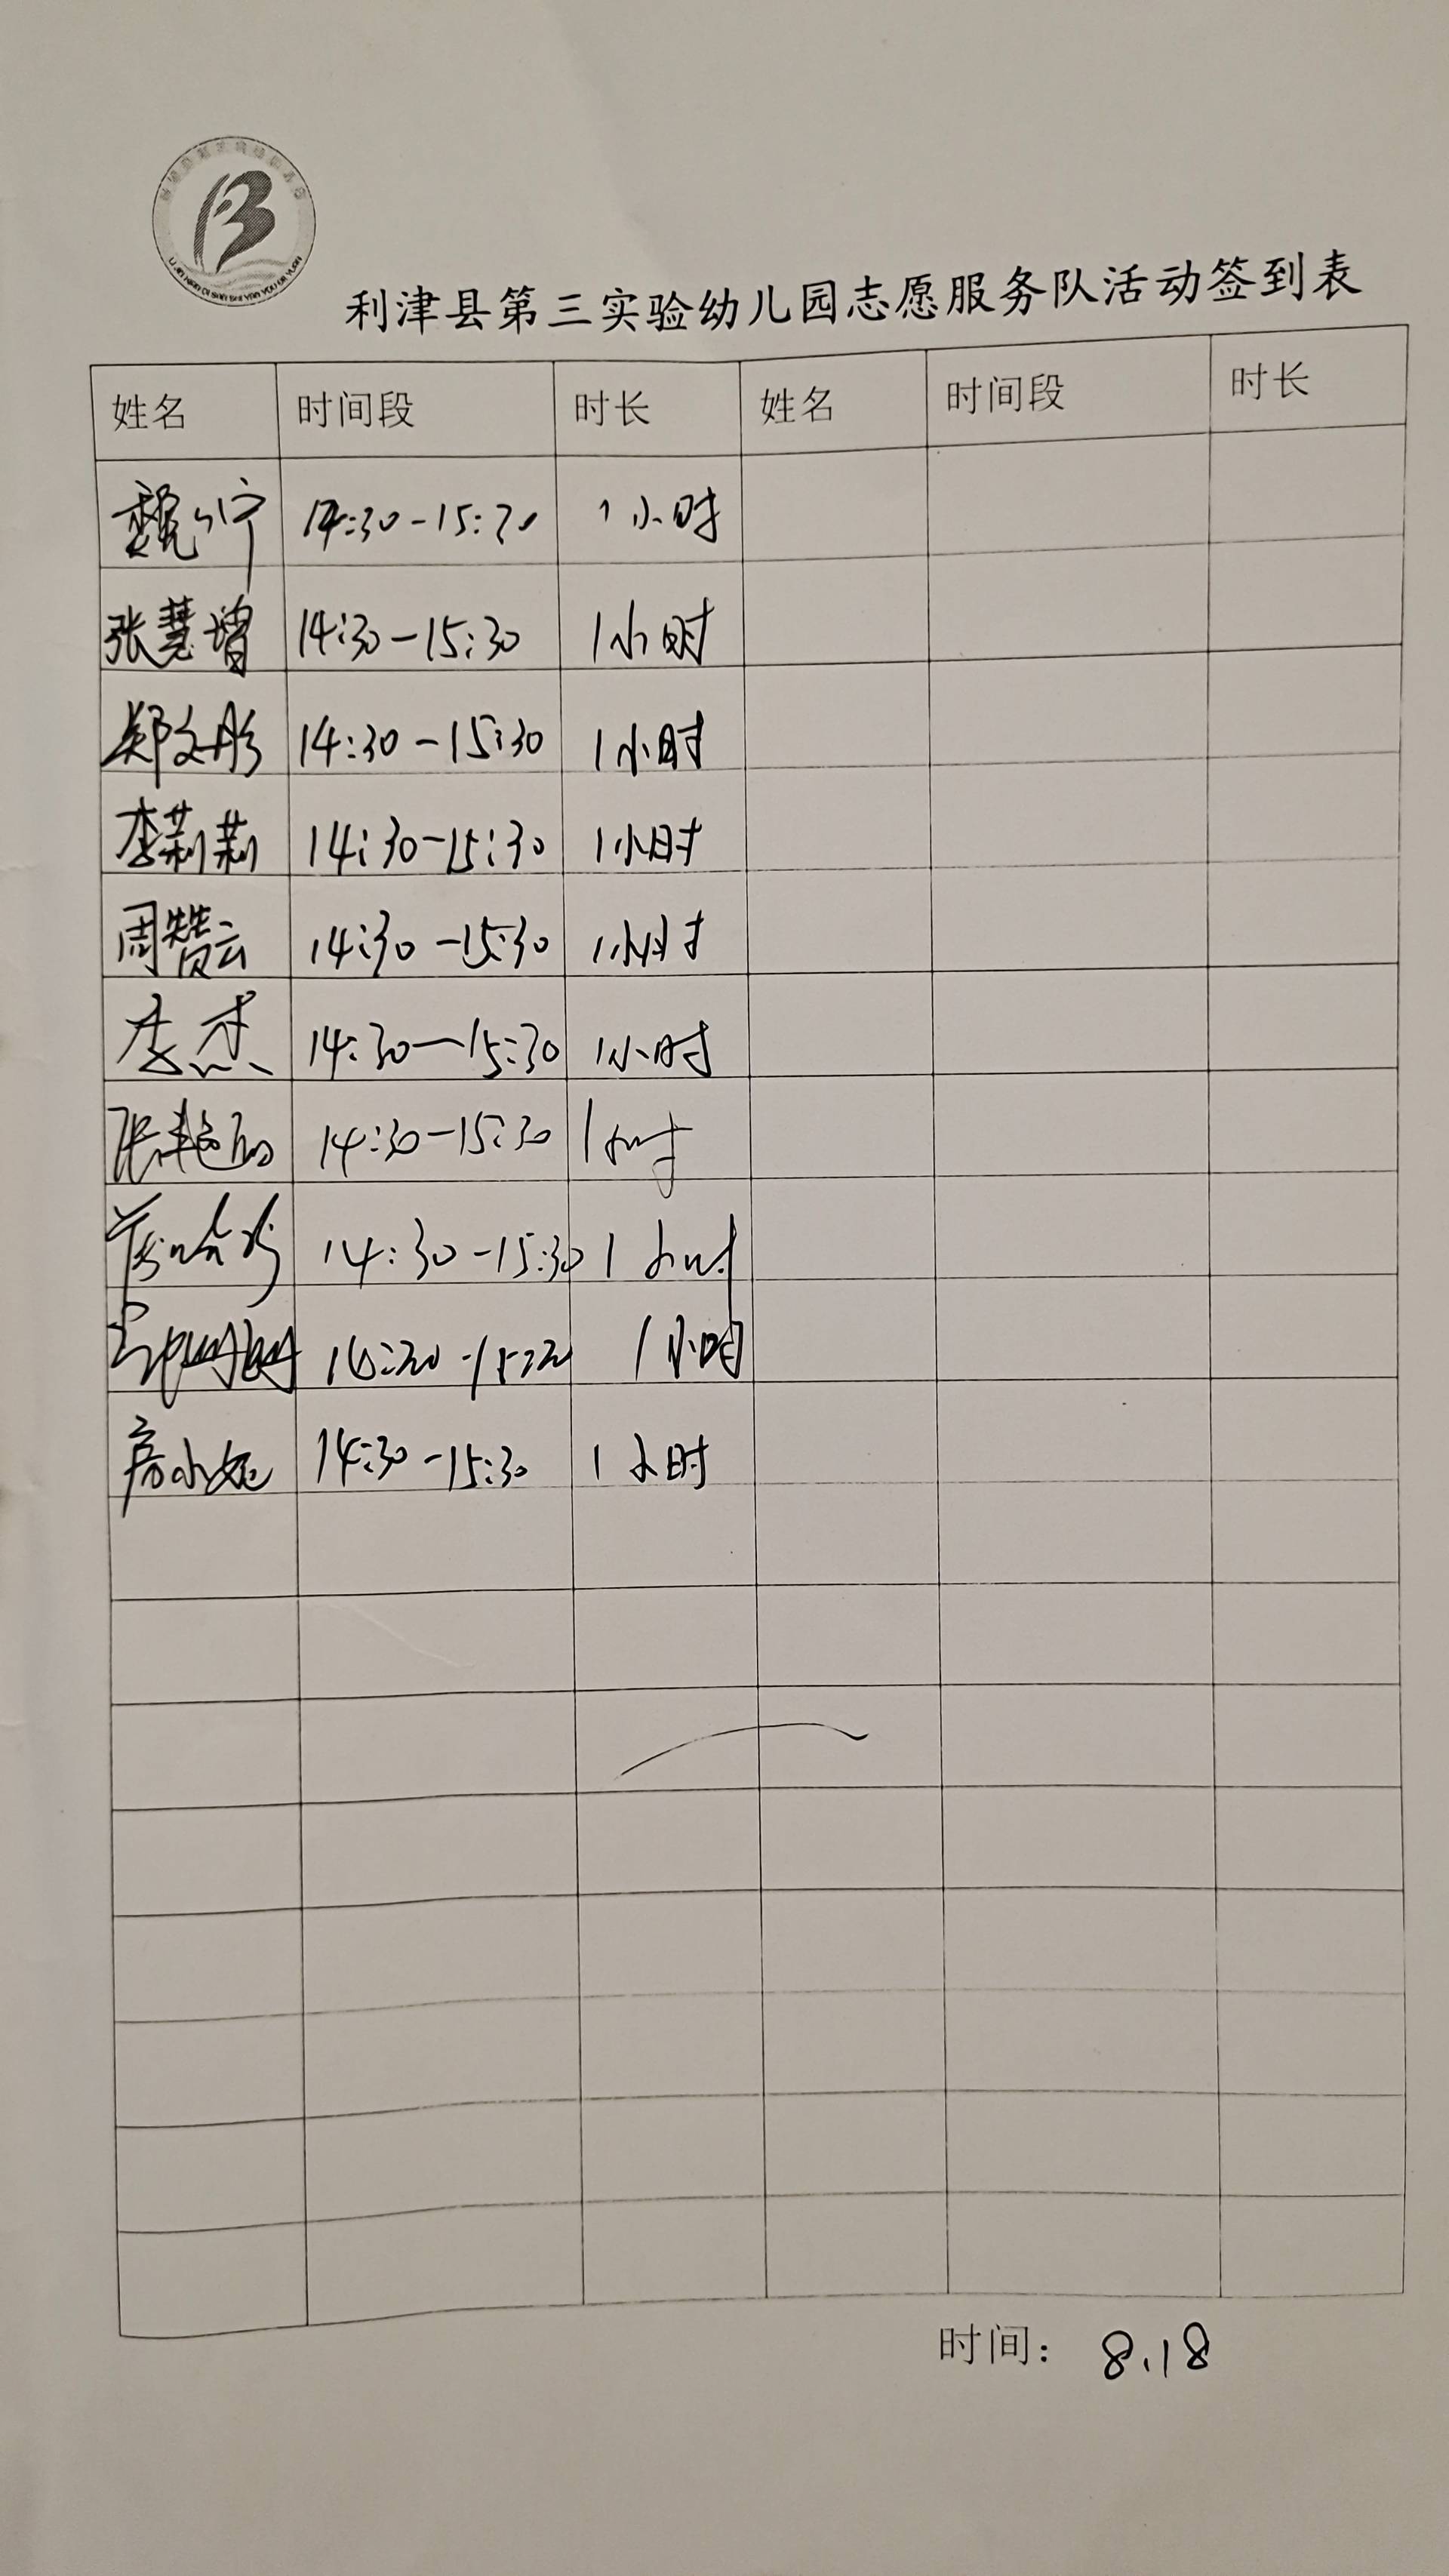 LI JIN XIAN DI SAN SHI YAN YOU ER YUAN
利津县第三实验幼儿园志愿服务队活动签到表
姓名 时间段 时长 姓名 时间段 时长
魏宁 14:30-15:30 1小时
张慧增 14:30-15:30 1小时
郑文彤 14:30-15:30 1小时
李莉莉 14:30-15:30 1小时
周赞云 14:30-15:30 1小时
李杰 14:30-15:30 1小时
张艳 14:30-15:30 1小时
14:30-15:30 1小时
1小时
房小妮 14:30-15:30 1小时
时间: 8.18